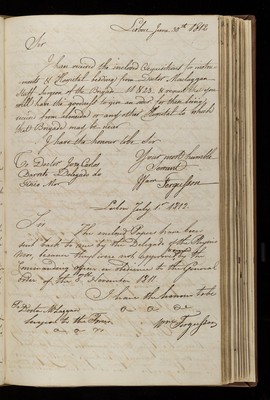 Lisbon June 30th 1812
Sir
I have received the inclosed Requisitions for instru-
ments & Hospital bedding from Doctor
Staff Surgeon of the Brigade & request that you
will have the goodness to give an order for their being
from or any other Hospital to which
that Brigade may be near
I have the honor to be Sir
To Doctor Your most humble
Servant
Physico Mor Wm Fergusson
Lisbon July 1st 1812
Sir
The enclosed Papers have been
sent back to me by the Delegate of the Physico
Mor, because they were not approved by the
Commanding officer in obedience to the General
order of the November 1811
I have the honor to be
To Doctor
Surgeon to the Forces Wm Fergusson